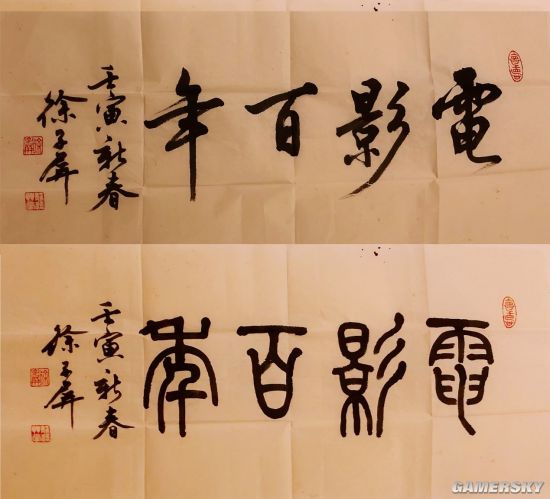 電影百年
壬寅新春
徐子屏
電影百年
壬寅新春
徐子屏
GAMERSKY